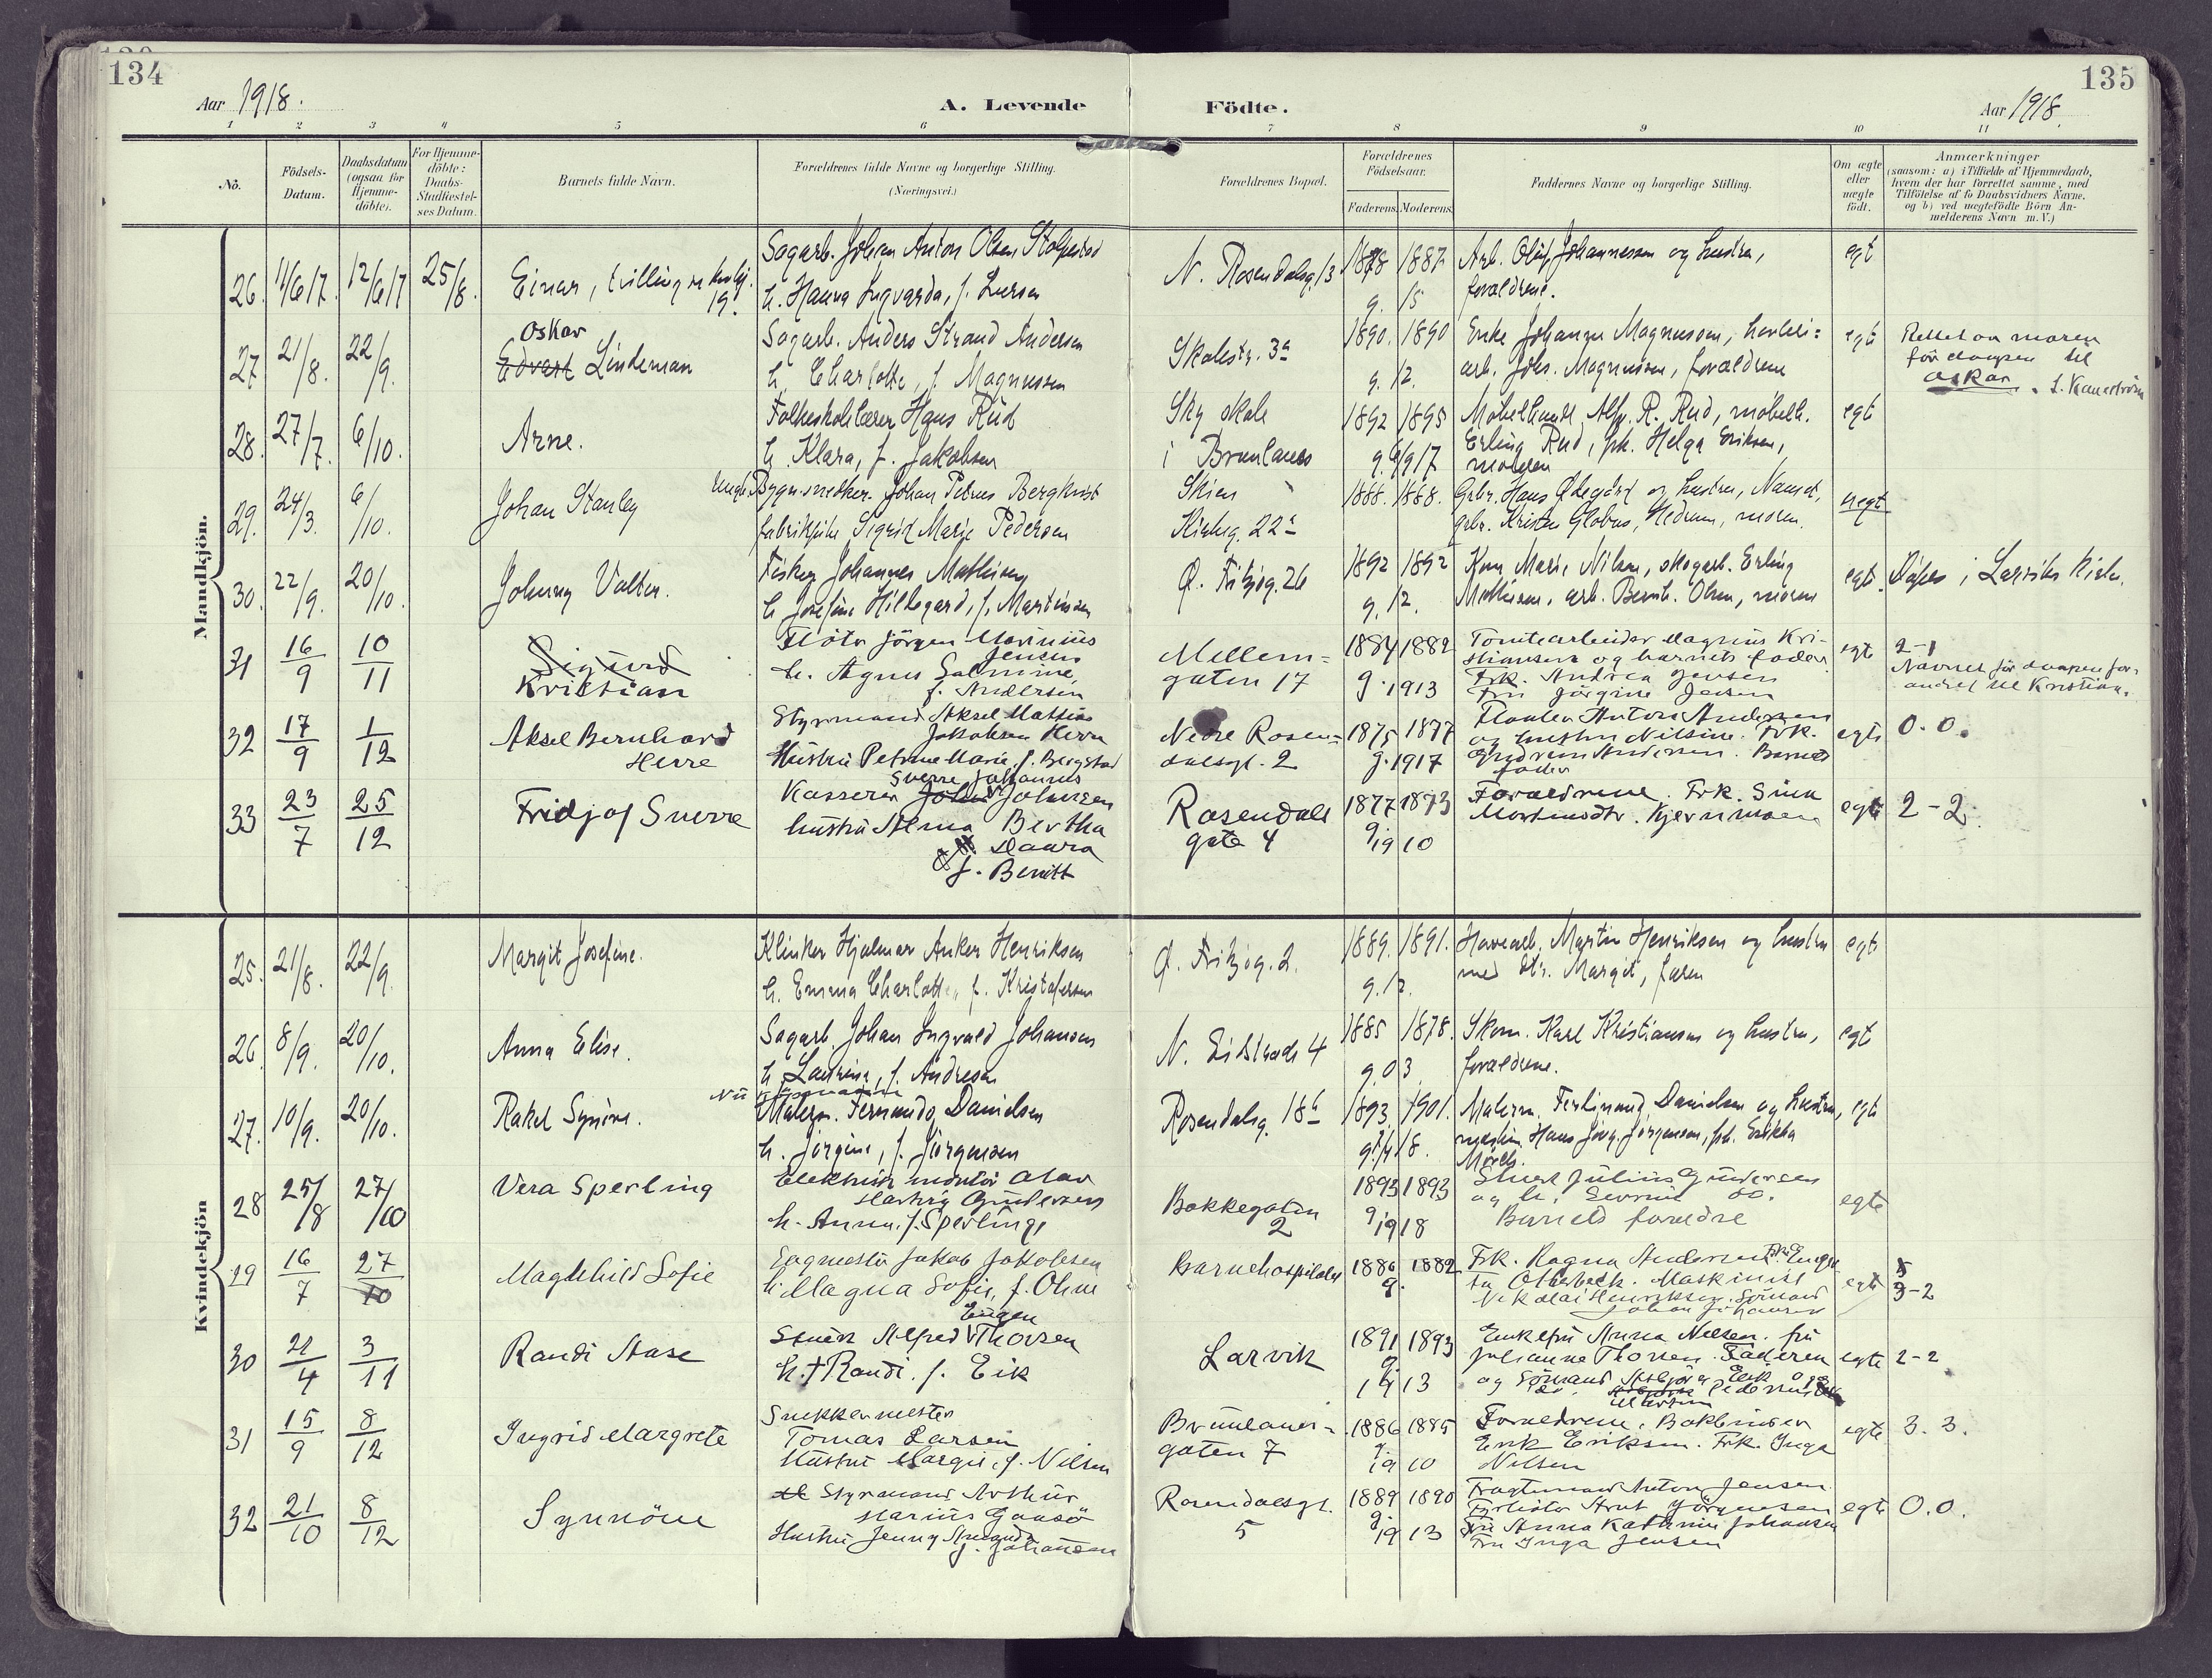 134
135
Aar 1918.
A. Levende Födte.
Aar 1918.
1 2 3 4 5 6 7 8 9 10 11
No.
Födsels-
Datum.
Daabsdatum
(ogsaa for
Hjemme-
döbte).
For Hjemme-
döbte:
Daabs-
Stadfæstel-
ses Datum.
Barnets fulde Navn.
Forældrenes fulde Navne og borgerlige Stilling.
(Næringsvei.)
Forældrenes Bopæl.
Forældrenes
Födselsaar.
Faderens. Moderens.
Faddernes Navne og borgerlige Stilling.
Om ægte
eller
uægte
födt.
Anmærkninger
(saasom: a) i Tilfælde af Hjemmedaab,
hvem der har forrettet samme, med
Tilföielse af to Daabsvidners Navne,
og b) ved uægtefödte Börn An-
melderens Navn m. V.)
Mandkjön.
26. 11/6 17. 12/6 17 25/8. Einar, tvilling m kvkj.
19.
Sagarb. Johan Anton Olsen Stolpestad
h. Hanna Ingvarda, f. Larsen
N. Rosendalsg. 13
1878 1887
g. 15
Arb. Oluf Johannessen og hustru,
forældrene.
egt
27 21/8. 22/9. Oskar
Edvart Lindeman
Sagarb. Anders Strand Andersen
h. Charlotte, f. Magnussen
Skolestr. 3a
1890. 1890
g. 12.
Enke Johanne Magnussen,
arb. Johs. Magnussen, forældrene
egt
Rettet av moren
för daapen til
Oskar.
28. 27/7. 6/10. Arne.
Folkeskolelærer Hans Rud
h. Klara, f. Jakobsen
Sky skole
i Brunlanes
1892 1895
g. 6/9 17
Møbelhandl. Alf. R. Rud, møbelh.
Erling Rud, frk. Helga Eriksen,
moren
egt
29. 24/3. 6/10. Johan Stanley
Ungk. Bygn.snedker. Johan Petrus Bergkvist
fabrikpike Sigrid Marie Pedersen
Skien
Kirkeg. 22a
1888. 1888.
Grbr. Hans Ødegård og hustru, Nanset,
grbr. Kristen Globus, Hedrum, moren.
uegt
30. 22/9. 20/10. Johnny Valter.
Fisker Johannes Mathisen
h. Josefine Hildegard, f. Martinsen
Ø. Fritzög. 26
1892 1892
g. 12.
Kone Marie Nilsen, skogarb. Erling
Mathisen, arb. Bernh. Olsen, moren
egt.
Döpes i Larviks Kirke.
31 16/9 10/11 Sigurd
Kristian
Flöter Jörgen Marinius
Jensen
h. Agnes Salmine,
f. Andersen
Mellem-
gaten 17
1884 1882
g. 1913
Tomtearbeider Magnus Kri-
stiansen og barnets fader
Frk. Andrea Jensen
Fru Jörgine Jensen
egt
2-1
Navnet för daapen for-
andret til Kristian.
32 17/9 1/12 Aksel Bernhard
Herre
Styrmand Aksel Mathias
Jakobsen Herre
Hustru Petrine Marie, f. Bergstad
Nedre Rosen-
dalsgt. 2
1875 1877
g. 1917
Anton Andersen
og hustru Nilsine. Frk.
Gudrun Andersen. Barnets
fader
egte
0. 0.
33 23/7 25/12 Fridjof Sverre
Sverre Johannes
Kasserer Johan Johnsen
hustru Alma Bertha
Maura
f. Benitt
Rosendals
gate 4
1877 1873
g. 1910
Forældrene. Frk. Sina
egte
2-2.
Kvindekjön
25. 21/8. 22/9. Margit Josefine.
Klinker Hjalmar Anker Henriksen
h. Emma Charlotte, f. Kristofersen
Ø. Fritzög. 2.
1889. 1891.
g. 12.
Havearb. Martin Henriksen og hustru
med dtr. Margit, faren
egt
26 8/9. 20/10. Anna Elise.
Sagarb. Johan Ingvald Johansen
h. Laurina, f. Andresen
1885 1878.
g. 03
Skom. Karl Kristiansen og hustru,
forældrene.
egt
27. 10/9. 20/10. Rakel Synöve.
Malersv. Fernando Danielsen
h. Jörgine, f. Jörgensen
Rosendalsg. 18b
1893. 1901.
Malerm. Ferdinand Danielsen og hustru,
Hans Jörg. Jörgensen, frk.
egt
28 25/8 27/10 Vera Sperling
Elektrisk montör Olav
Hartvig Gundersen
h. Anna, f. Sperling
Bakkegaten
2
1893 1893
g. 1918
Stuert Julius Gundersen
og h.
Barnets forældre
egte
29 16/7 27/10 Maghild Sofie
Sagmester Jakob Jakobsen
h. Magna Sofie, f. Olsen
Barnehospitalet
1886 1882
g.
Frk. Ragna Andersen.
Maskinist
Nikolai Henriksen. Sömand
Johan Johansen
egt
3-2
30 21/4 3/11 Randi Aase
Eugen
Stuert Alfred Thorsen
h. † Randi. f. Eik
Larvik
1891 1893
g.
1913
Enkefru Anna Nilsen. fru
Julianne Thorsen. Faderen
og Sömand
egte
2-2
31 15/9 8/12 Ingrid Margrete
Snekkermester
Tomas Larsen
Hustru Margit, f. Nilsen
Brunlanes-
gaten 7
1886 1885
g.
1910
Forældrene. Bokbinder
Erik Eriksen. Frk. Inga
Nilsen
egte
3. 3.
32 21/10 8/12 Synnöve
Styrmand Arthur
Marius Gaasö
Hustru Jenny
f. Johansen
Rosendalsgt.
5
1889 1890
g.
1913
Anton Jensen.
Jörgensen
Fru Anna Kathrine Johansen
Fru Inga Jensen
egte
0. 0.